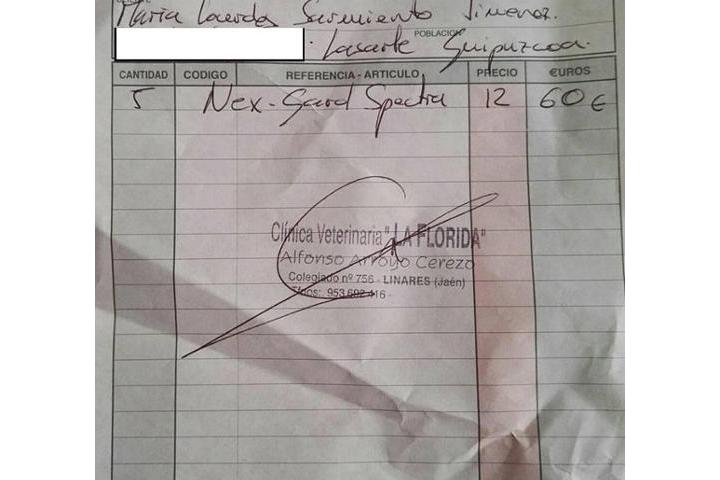 Maria Lourdes Sarmiento Jimenez.
POBLACIÓN
Lasarte Guipuzcoa.
CANTIDAD CODIGO REFERENCIA - ARTICULO PRECIO €UROS
5 Nex-Gard Spectra 12 60€
Clínica Veterinaria "LA FLORIDA"
Alfonso Arroyo Cerezo
Colegiado nº 756 - LINARES (Jaén)
Tfnos: 953 692 416 -